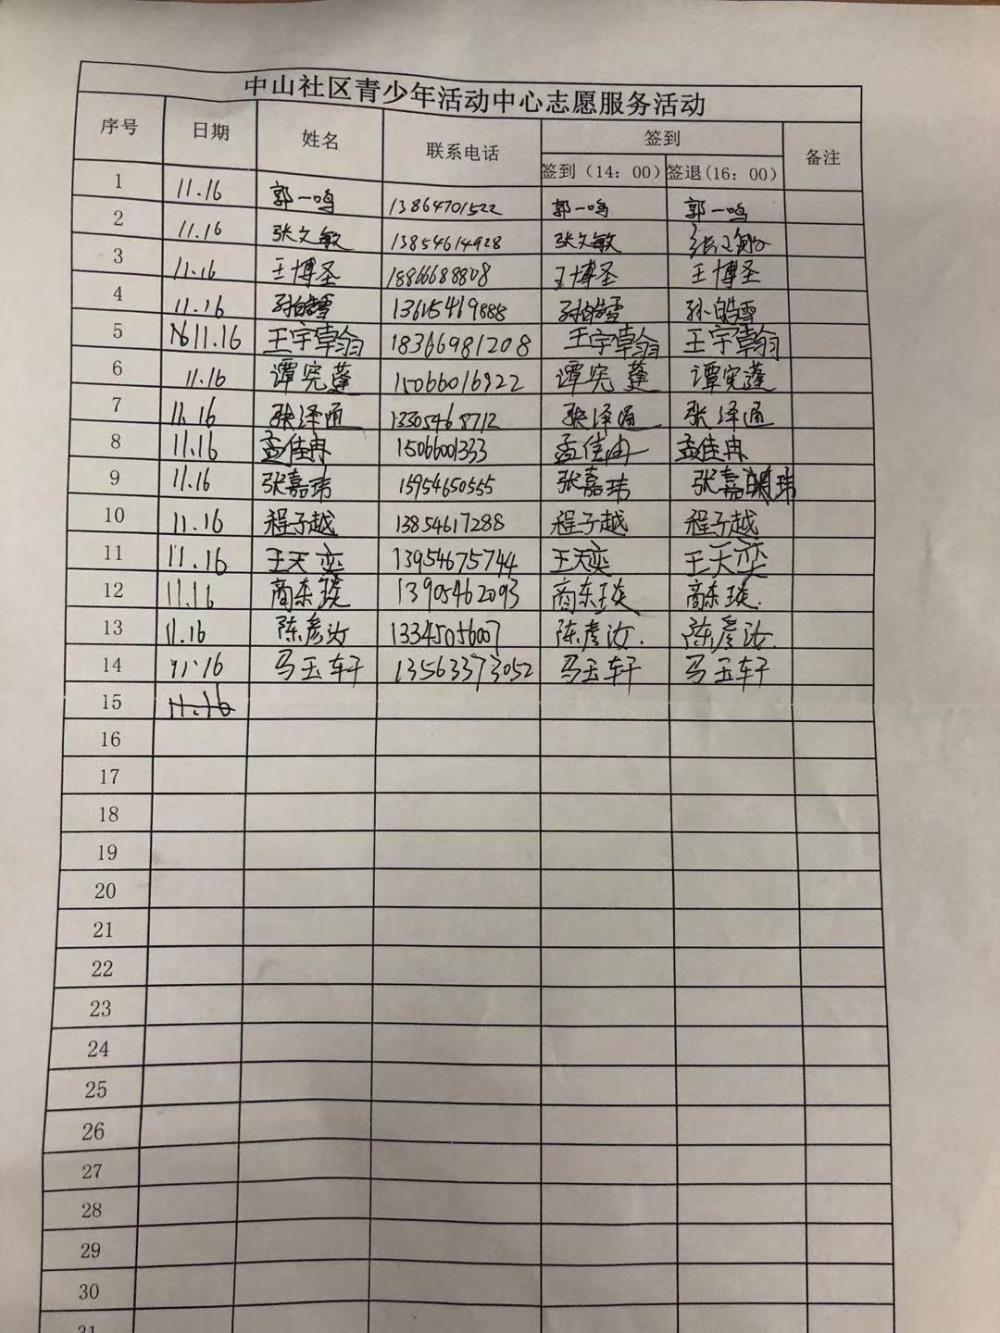 中山社区青少年活动中心志愿服务活动
序号 日期 姓名 联系电话 签到 备注
签到（14：00） 签退(16：00)
1 11.16 郭一鸣 13864701522 郭一鸣 郭一鸣
2 11.16 张文敏 13854614928 张文敏 张文敏
3 11.16 王博圣 18866688808 王博圣 王博圣
4 11.16 孙皓雪 13615469888 孙皓雪 孙皓雪
5 11.16 王宇翰 18366981208 王宇翰 王宇翰
6 11.16 谭宪蓬 15066016922 谭宪蓬 谭宪蓬
7 11.16 张泽通 13305468712 张泽通 张泽通
8 11.16 孟佳冉 15066001333 孟佳冉 孟佳冉
9 11.16 张嘉玮 15954650555 张嘉玮 张嘉玮
10 11.16 程子越 13854617288 程子越 程子越
11 11.16 王天奕 13954675744 王天奕 王天奕
12 11.16 商东琰 13905462093 商东琰 商东琰.
13 11.16 陈彦汝 13345056007 陈彦汝. 陈彦汝.
14 11.16 马玉轩 13563373052 马玉轩 马玉轩
15 11.16
16
17
18
19
20
21
22
23
24
25
26
27
28
29
30
31